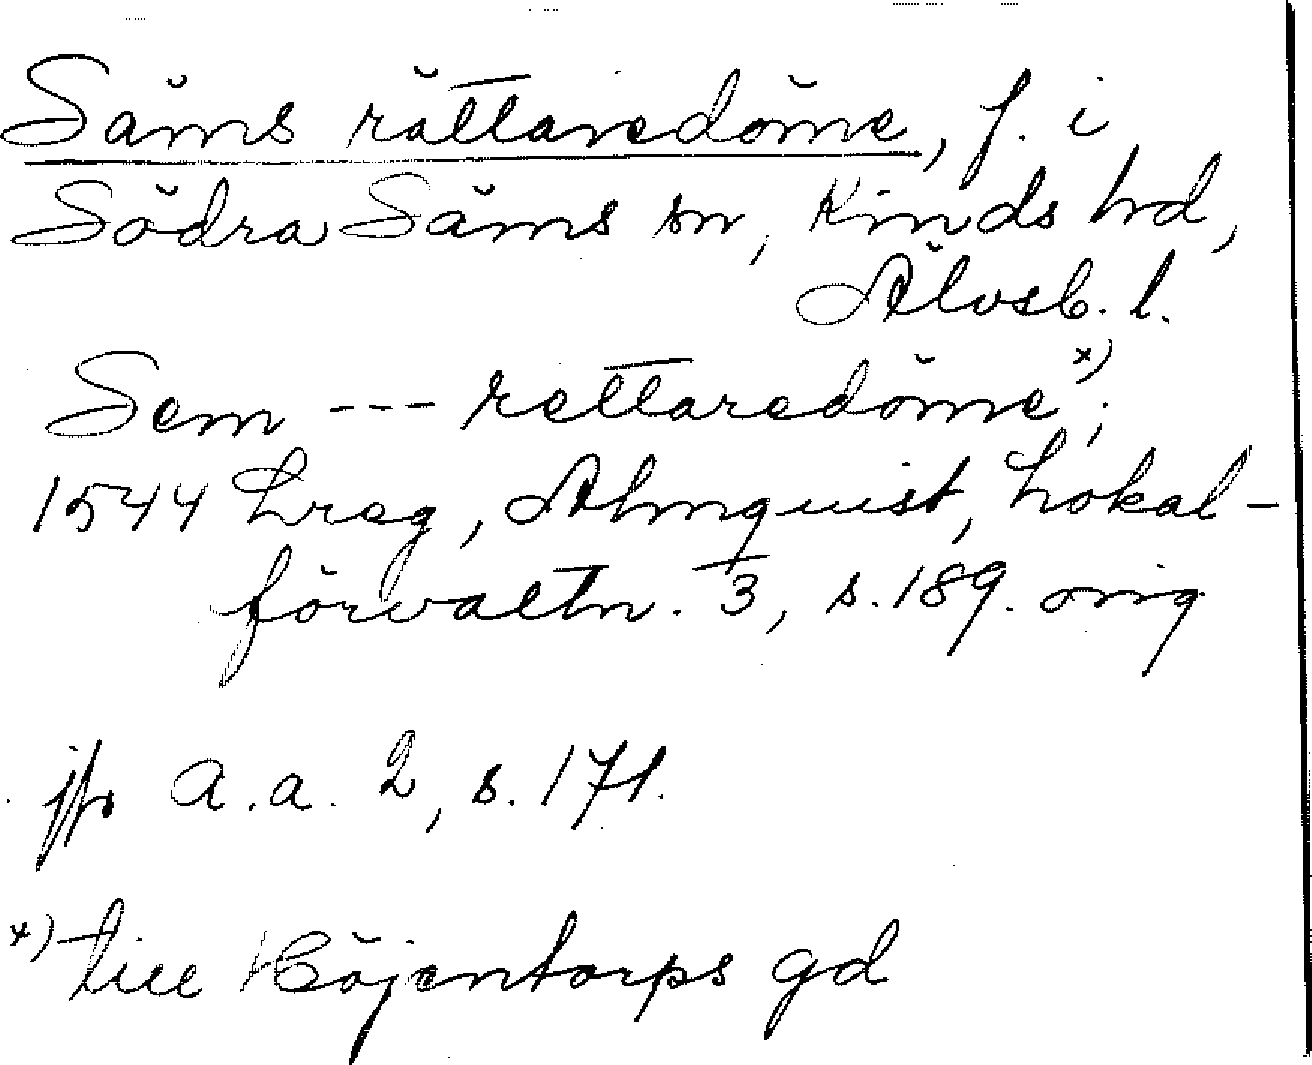 Säms rättaredöme, f. i
Södra Säms sn, Kinds hd,
Älvsb. l.
Sem --- rettaredöme x);
1544 Lreg, Almquist, Lokal-
förvaltn. 3, s. 189. orig
jfr a.a. 2, s. 171.
x) till Höjentorps gd